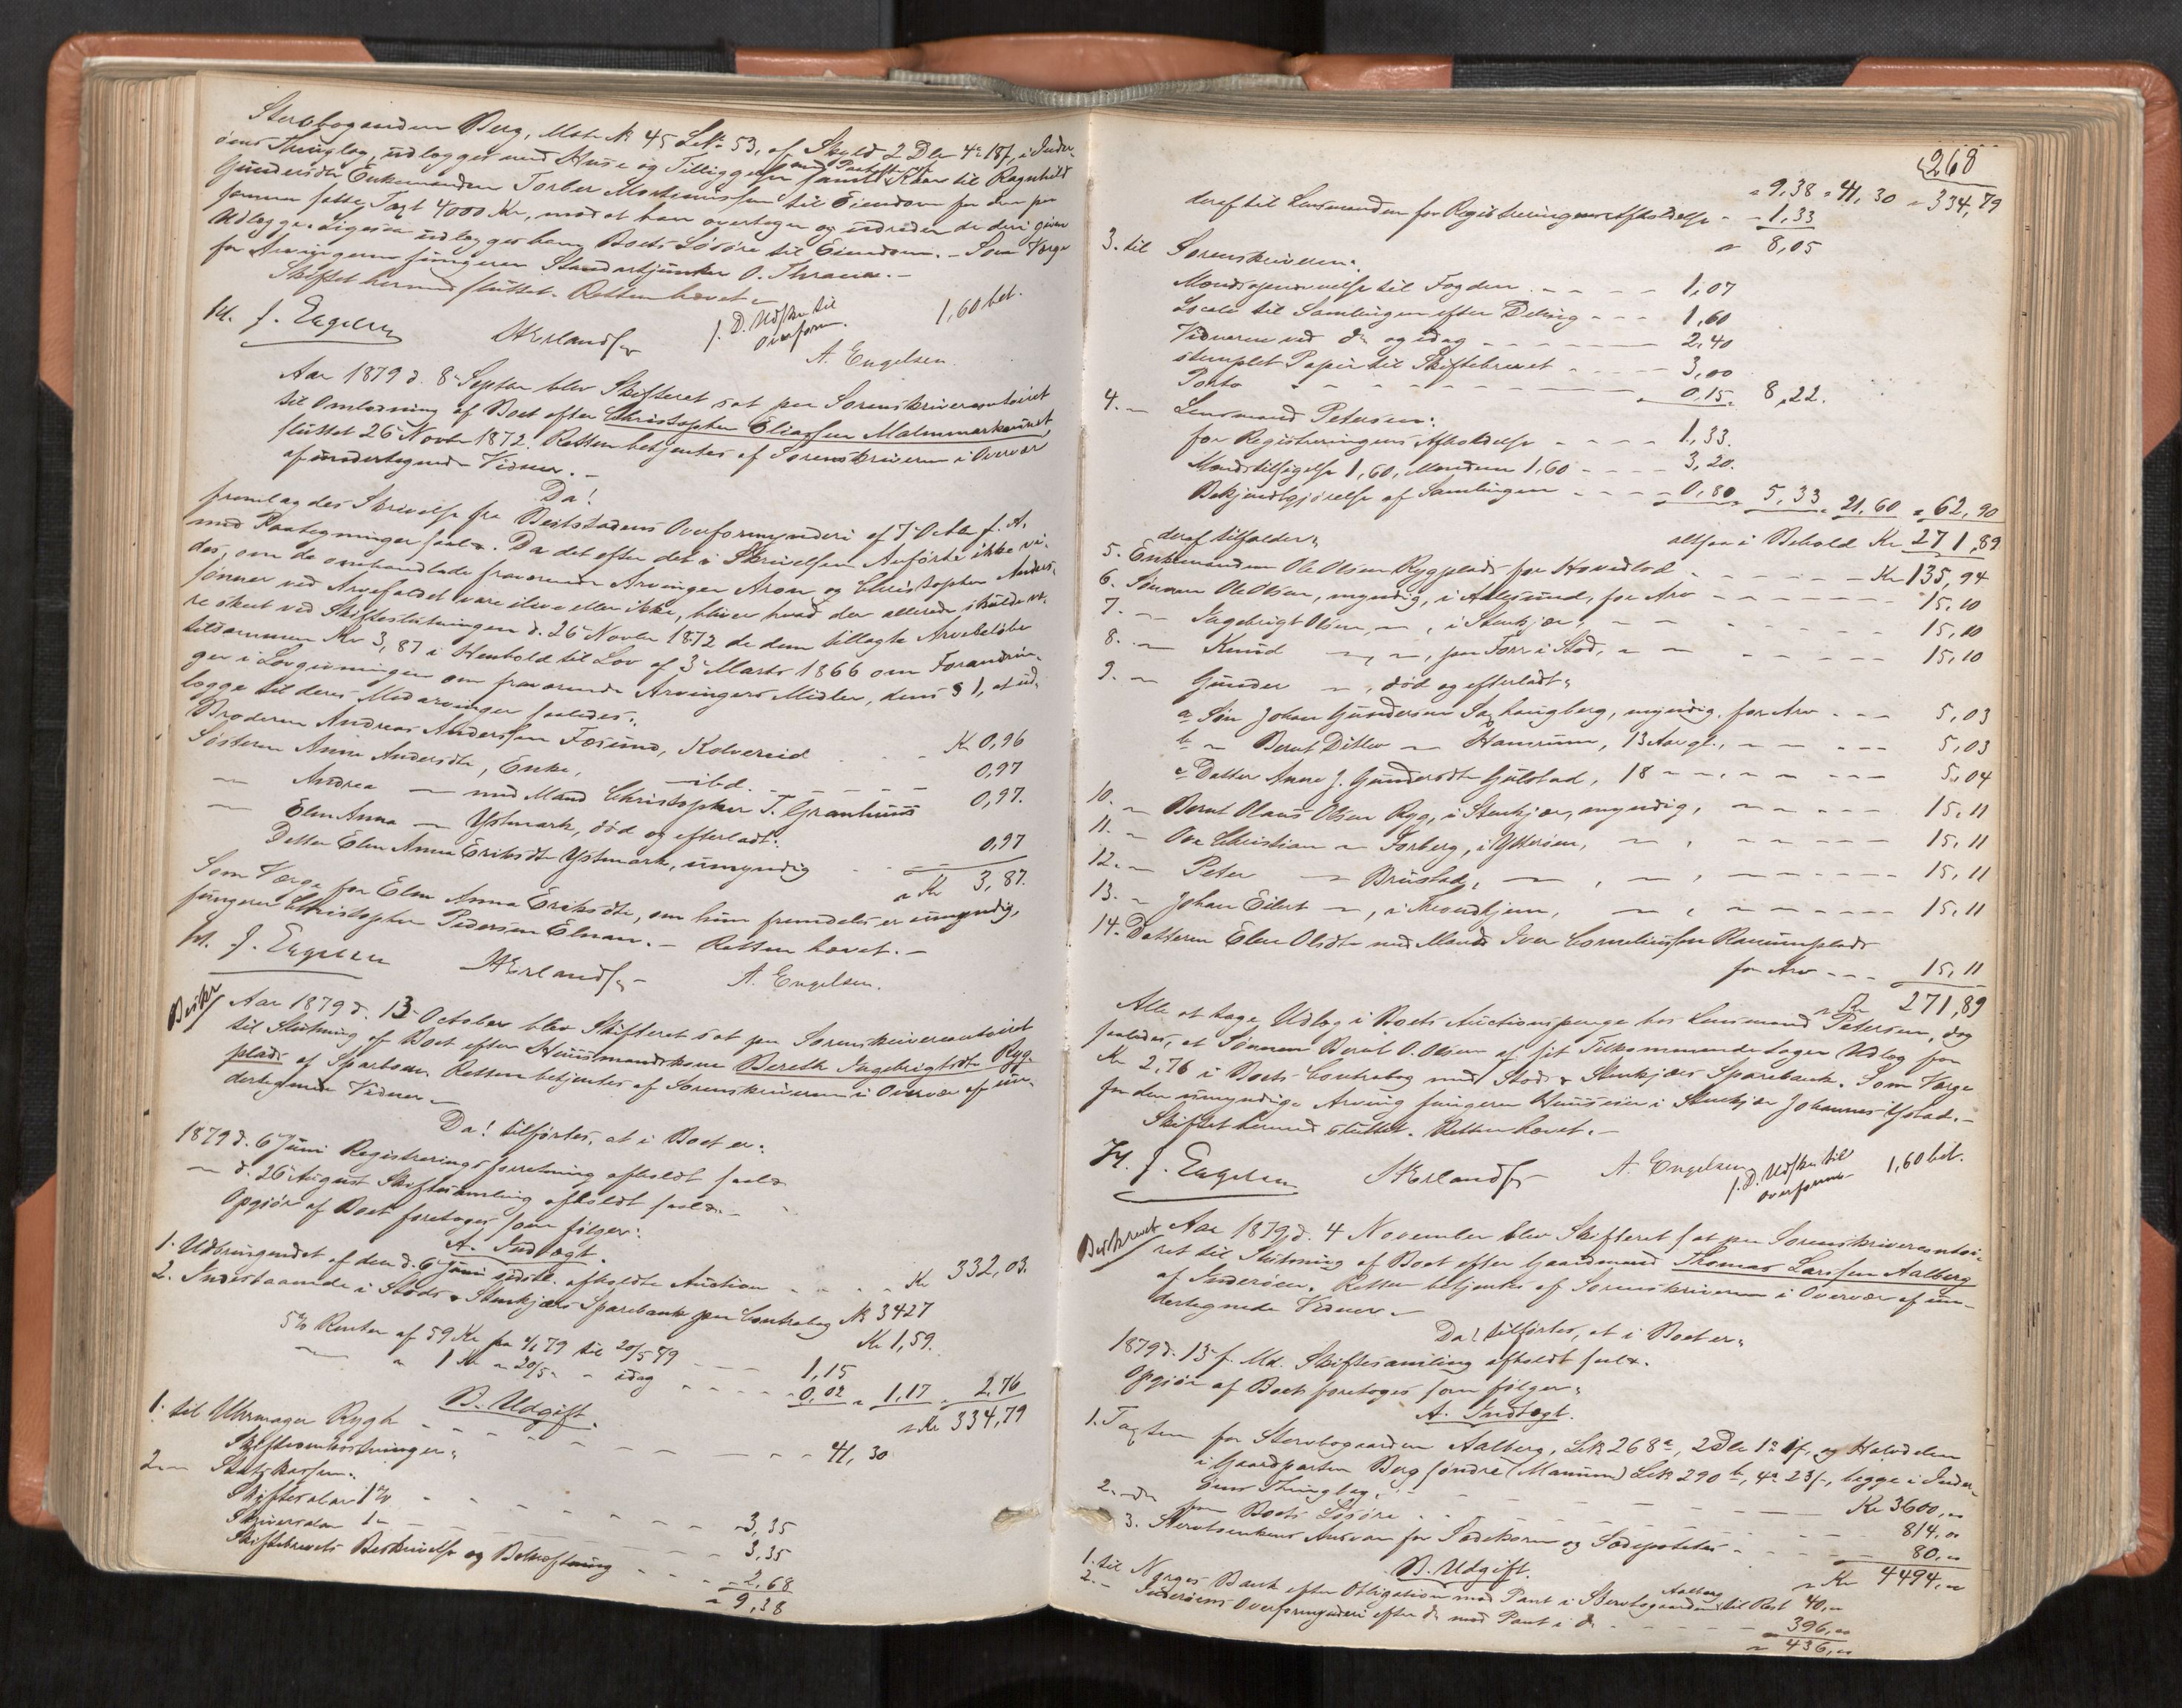 Stervbogaarden Berg, Matr. № 45 L№ 53, af Skyld 2 Dlr 4 ₰ 18 ß, i Inder-
øens Thinglag, udlægges med Huse og Tilliggelser samt Kaar til Ragnhild
Gundersdtr Enkemanden Torber Martinussen til Eiendom for den paa
samme satte Taxt 4000 Kr, mod at han overtager og udreder de deri givne
Udlæg. Ligesaa udlægges ham Boets Løsøre til Eiendom. – Som Værge
for Arvingerne fungerer Standartjunker O. Thrana. –
Skiftet hermed sluttet. Retten hævet. –
J. Engelsen
HErlandsen
f. D. Udskr. til
Overform.
1,60 bet.
A. Engelsen.
Aar 1879 d. 8 Septbr blev Skifteret sat paa Sorenskrivercontoiret
til Omlodning af Boet efter Christopher Eliassen Malmmarkovnet,
sluttet 26 Novbr 1872. Retten betjentes af Sorenskriveren i Overvær
af undertegnede Vidner. –
Da!
fremlagdes Skrivelse fra Beitstadens Overformynderi af 7 Octbr f. A.
med Paategninger saal. Da det efter det i Skrivelsen Anførte ikke vi-
des, om de omhandlede fraværende Arvinger Aron og Christopher Anders-
sønner ved Arvefaldet vare ilive eller ikke, bliver hvad der allerede skulde væ-
re skeet ved Skiftesslutningen d. 26 Novbr 1872 de dem tillagte Arvebeløbe
tilsammen Kr 3,87 i Henhold til Lov af 3 Marts 1866 om Forandrin-
ger i Lovgivningen om fraværende Arvingers Midler, dens § 1, at ud-
lægge til deres Medarvinger saaledes:
Broderen Andreas Anderssen Fosund, Kolvereid . . . Kr 0,96
Søsteren Anna Andersdtr, Enke, ibd. – – – 0,97
— Andrea — med Mand Christopher T. Granhuus 0,97.
— Elen Anna — Ystmark, død og efterladt:
Datter Elen Anna Eriksdtr Ystmark, umyndig . . . 0,97
Kr 3,87.
Som Værge for Elen Anna Eriksdtr, om hun fremdeles er umyndig,
fungerer Christopher Pedersen Elnan. – Retten hævet. –
J. Engelsen
HErlandsen
A. Engelsen.
Beskr
Aar 1879 d. 13 October blev Skifteret sat paa Sorenskrivercontoiret
til Slutning af Boet efter Huusmandskone Bereth Ingebrigtsdtr Ryg-
plads af Sparboen. Retten betjentes af Sorenskriveren i Overvær af un-
dertegnede Vidner –
Da! tilførtes, at i Boet er:
1879 d. 6 Juni Registreringsforretning afholdt saal.
— d. 26 August Skiftesamling afholdt saal. –
Opgjør af Boet foretoges som følger:
A. Indtægt.
1. Udbringendet af den d. 6 Juni sidstl. afholdte Auction . . . Kr 332,03.
2. Indestaaende i Stods & Stenkjærs Sparebank paa Contrabog № 3427
Kr 1,59.
5 % Renter af 59 Kr fra 1/1 79 til 20/5 79 – – – 1,15
— " 1 Kr " 20/5 – " idag – – – 0,02 " 1,17 " 2,76
" Kr 334,79
B. Udgift.
1. til Uhrmager Rygh – – – – – – 41,30
Skifteomkostninger:
2. — Statskassen:
Skiftesalær 1 % – – – – 3,35
Skriversalær do – – – – 3,35
Skiftebrevets Beskrivelse og Bekræftning – – – 2,68
" 9,38
268
" 9,38 " 41,30 " 334,79
deraf til Lensmanden for Registreringens Afholdelse – – 1,33
" 8,05
3. til Sorenskriveren:
Mandsopnævnelse til Fogden – – – – 1,07
Locale til Samlingen efter Deling – – – 1,60
Vidnerne ved do og idag – – – – 2,40
stemplet Papir til Skiftebrevet – – – – 3,00
Porto – – – – – 0,15. 8,22.
4. — Lensmand Petersen:
for Registreringens Afholdelse – – – – 1,33.
Mændstilsigelse 1,60, Mændene 1,60 – – – – 3,20.
Bekjendtgjørelse af Samlingen – – – – 0,80 " 5,33 " 21,60 " 62,90
altsaa i Behold Kr 271,89
deraf tilfalder:
5. Enkemanden Ole Olsen Rygplads for Hovedlod – – – – Kr 135,94
6. Sønnen Ole Olsen, myndig, i Aalesund, for Arv – – – – 15,10
7. — Ingebrigt Olsen, —, i Stenkjær, – – – – 15,10
8. — Knud —, —, paa Forr i Stod, — — – – – – 15,10
9. — Gunder —, død og efterladt:
a Søn Johan Gundersen Saxhaugberg, myndig, for Arv – – – 5,03
b — Bernt Ditlev — Hamrum, 13 Aar gl., — — – – – 5,03
c Datter Anne J. Gundersdtr Gulstad, 18 — —, — — – – – 5,04
10. — Bernt Olaus Olsen Ryg, i Stenkjær, myndig, — — – – – 15,11
11. — Ove Christian — Forberg, i Ytterøen, —, — – – – – 15,11
12. — Peter — Brustad, —, —, — – – – – 15,11
13. — Johan Eilert —, i Throndhjem, —, — – – – – 15,11
14. Datteren Elen Olsdtr med Mand Iver Corneliussen Ramumplads
for Arv – – – 15,11
" Kr 271,89
Alle at tage Udlæg i Boets Auctionspenge hos Lensmand Petersen, dog
saaledes, at Sønnen Bernt O. Olsen af sit Tilkommende tager Udlæg for
Kr 2,76 i Boets Contrabog med Stods & Stenkjærs Sparebank. Som Værge
for den umyndige Arving fungerer Huuseier i Stenkjær Johannes Ystad. –
Skiftet hermed sluttet. Retten hævet. –
J. Engelsen
HErlandsen
A. Engelsen
f. D. Udskr. til
Overform.
1,60 bet.
Beskrevet
Aar 1879 d. 4 November blev Skifteret sat paa Sorenskrivercontoi-
ret til Slutning af Boet efter Gaardmand Thomas Larssen Aalberg
af Inderøen. Retten betjentes af Sorenskriveren i Overvær af un-
dertegnede Vidner –
Da! tilførtes, at i Boet er:
1879 d. 13 f. Md. Skiftesamling afholdt saal.
Opgjør af Boet foretoges som følger:
A. Indtægt.
1. Taxten for Stervbogaarden Aalberg, L№ 268 a, 2 Dlr 1 ₰ 1 ß, og Halvdelen
i Gaardparten Berg søndre (Manum) L№ 290 b, 4 ₰ 23 ß, begge i Inder-
øens Thinglag, – – – – – Kr 3600,00
2. — do for Boets Løsøre – – – – – 814,00
3. Stervboenkens Ansvar for Sædekorn og Sædepoteter – – – 80,00
" Kr 4494,00
B. Udgift.
1. til Norges Bank efter Obligation med Pant i Stervbogaarden Aalberg til Rest 40,00
2. — Inderøens Overformynderi efter do med Pant i do – – – – 396,00
" 436,00